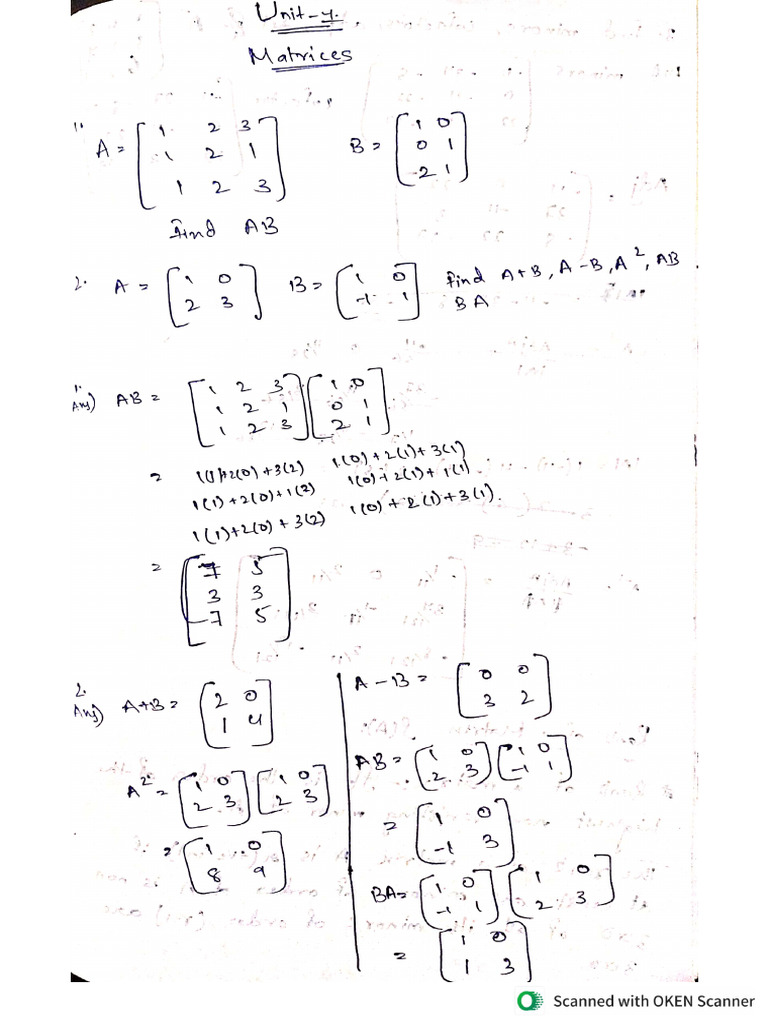 Unit-4.
Matrices
1. A = [1 2 3; 1 2 1; 1 2 3] B = [1 0; 0 1; 2 1]
Find AB
2. A = [1 0; 2 3] B = [1 0; -1 1] find A+B, A-B, A², AB
BA
1. Ans) AB = [1 2 3; 1 2 1; 1 2 3] [1 0; 0 1; 2 1]
= 1(1)+2(0)+3(2) 1(0)+2(1)+3(1)
1(1)+2(0)+1(2) 1(0)+2(1)+1(1)
1(1)+2(0)+3(2) 1(0)+2(1)+3(1).
= [7 5; 3 3; 7 5]
2. Ans) A+B = [2 0; 1 4]
A² = [1 0; 2 3] [1 0; 2 3]
= [1 0; 8 9]
A-B = [0 0; 3 2]
AB = [1 0; 2 3] [1 0; -1 1]
= [1 0; -1 3]
BA = [1 0; -1 1] [1 0; 2 3]
= [1 0; 1 3]
Scanned with OKEN Scanner